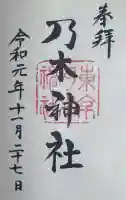 奉拝
乃木神社
令和元年十一月二十七日